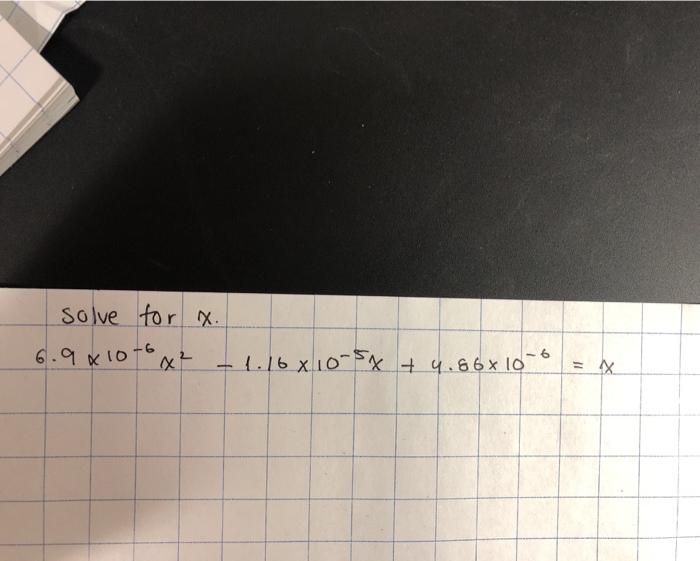 solve for x.
6.9 x 10⁻⁶ x² - 1.16 x 10⁻⁵x + 4.86 x 10⁻⁶ = x